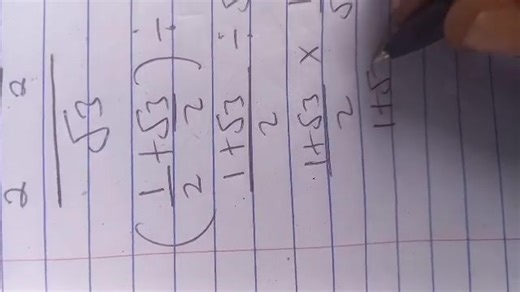 2 2
√3
(1/2 + √3/2) ÷
(1+√3)/2 ÷
(1+√3)/2 ×
1+√